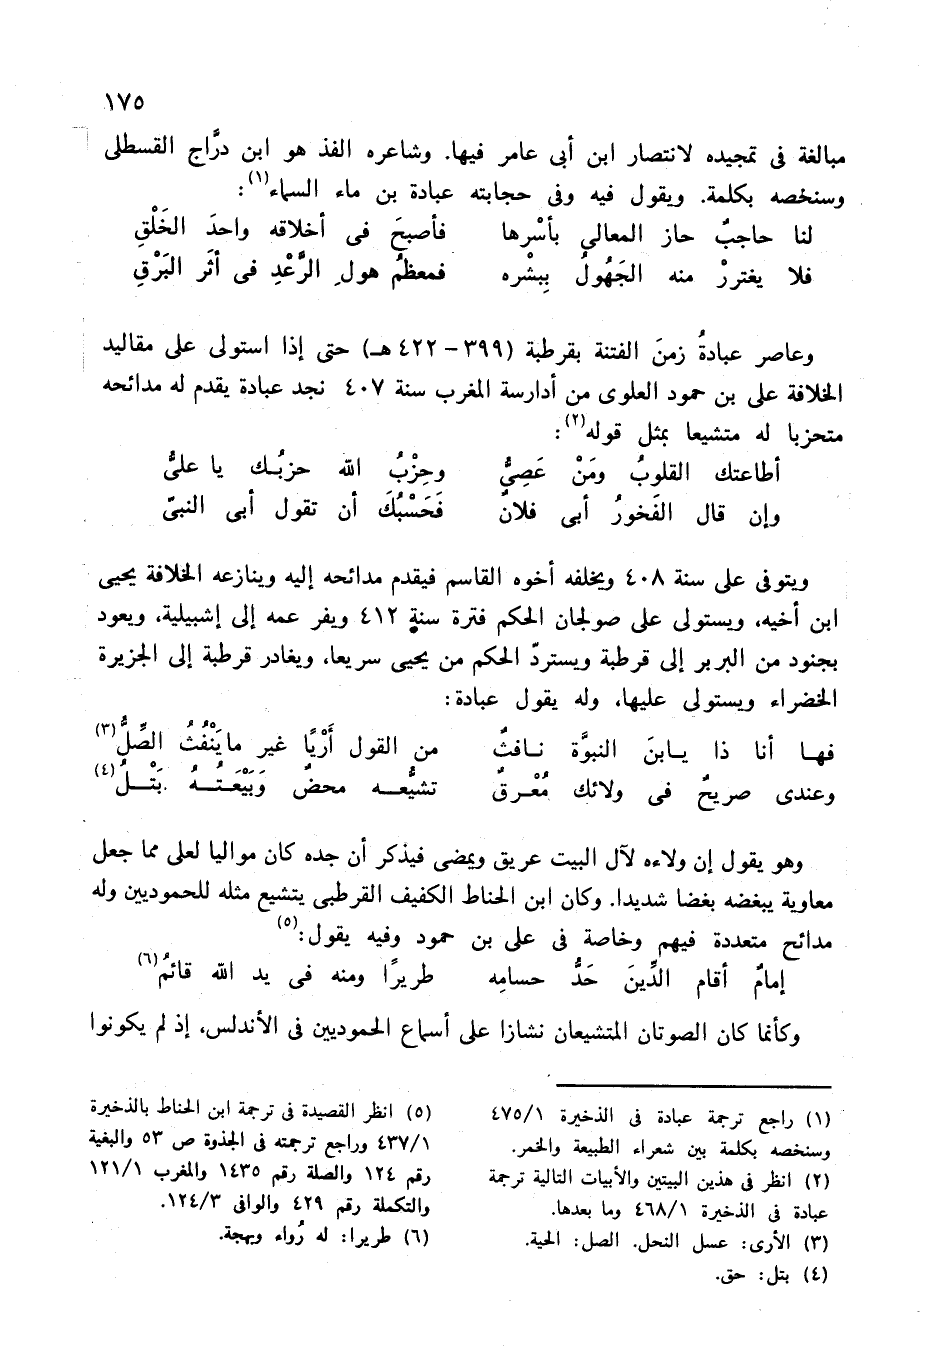 ١٧٥
مبالغة فى تمجيده لانتصار ابن أبى عامر فيها. وشاعره الفذ هو ابن درَّاج القسطلى
وسنخصه بكلمة. ويقول فيه وفى حجابته عبادة بن ماء السماء(١):
لنا حاجبٌ حاز المعالي بأسْرها فأصبحَ فى أخلاقه واحدَ الخَلْقِ
فلا يغتررْ منه الجَهُولُ بِبِشْره فمعظمُ هولِ الرَّعْدِ فى أثَر البَرْقِ
وعاصر عبادةُ زمنَ الفتنة بقرطبة (٣٩٩ - ٤٢٢ هـ) حتى إذا استولى على مقاليد
الخلافة على بن حمود العلوى من أدارسة المغرب سنة ٤٠٧ نجد عبادة يقدم له مدائحه
متحزبا له متشيعا بمثل قوله(٢):
أطاعتك القلوبُ ومَنْ عَصِىُّ وحِزْبُ الله حزبُـك يا علىُّ
وإن قال الفَخورُ أبى فلانٌ فَحَسْبُكَ أن تقول أبى النبىّ
ويتوفى على سنة ٤٠٨ ويخلفه أخوه القاسم فيقدم مدائحه إليه وينازعه الخلافة يحيى
ابن أخيه، ويستولى على صولجان الحكم فترة سنة ٤١٢ ويفر عمه إلى إشبيلية، ويعود
بجنود من البربر إلى قرطبة ويستردّ الحكم من يحيى سريعا، ويغادر قرطبة إلى الجزيرة
الخضراء ويستولى عليها، وله يقول عبادة:
فهـا أنا ذا يـابنَ النبوَّة نـافثٌ من القول أَرْيًا غير ماينْفُثُ الصِّلُّ(٣)
وعندى صريحٌ فى ولائك مُعْرقٌ تشيُّعـه محضٌ وَبَيْعَتُـهُ بَتْـلُ(٤)
وهو يقول إن ولاءه لآل البيت عريق ويمضى فيذكر أن جده كان مواليا لعلى مما جعل
معاوية يبغضه بغضا شديدا. وكان ابن الحناط الكفيف القرطبى يتشيع مثله للحموديين وله
مدائح متعددة فيهم وخاصة فى على بن حمود وفيه يقول:(٥)
إمامٌ أقام الدِّينَ حَدُّ حسامِه طريرًا ومنه فى يد الله قائمُ(٦)
وكأنما كان الصوتان المتشيعان نشازا على أسماع الحموديين فى الأندلس، إذ لم يكونوا
(١) راجع ترجمة عبادة فى الذخيرة ٤٧٥/١
وسنخصه بكلمة بين شعراء الطبيعة والخمر.
(٢) انظر فى هذين البيتين والأبيات التالية ترجمة
عبادة فى الذخيرة ٤٦٨/١ وما بعدها.
(٣) الأرى: عسل النحل. الصل: الحية.
(٤) بتل: حق.
(٥) انظر القصيدة فى ترجمة ابن الحناط بالذخيرة
٤٣٧/١ وراجع ترجمته فى الجذوة ص ٥٣ والبغية
رقم ١٢٤ والصلة رقم ١٤٣٥ والمغرب ١٢١/١
والتكملة رقم ٤٢٩ والوافى ١٢٤/٣.
(٦) طريرا: له رُواء وبهجة.